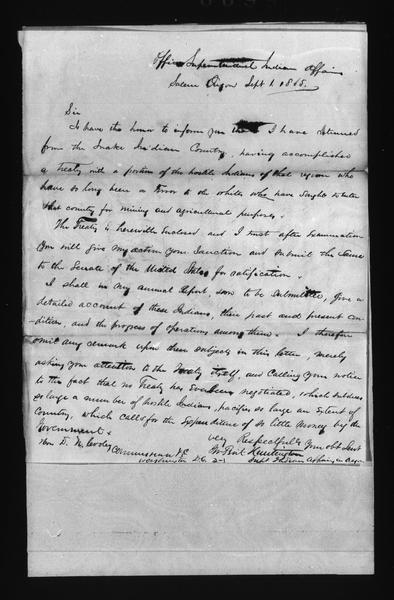 Office Superintendent Indian Affairs
Salem Oregon Sept 1. 1865.
Sir
I have the honor to inform you I have returned
from the Snake Indian Country, having accomplished
a Treaty with a portion of the hostile Indians of that region who
have so long been a terror to the whites who have sought to enter
that country for mining and agricultural purposes.
The Treaty is herewith inclosed and I trust after examination
you will give my action your sanction and submit the same
to the Senate of the United States for ratification.
I shall in my annual Report, soon to be submitted, give a
detailed account of these Indians, their past and present con-
dition, and the progress of operations among them. I therefore
omit any remark upon these subjects in this letter, merely
asking your attention to the Treaty itself, and calling your notice
to the fact that no Treaty has ever been negotiated, which subdues
so large a number of hostile Indians, pacifies so large an extent of
Country, which calls for the expenditure of so little money by the
Government.
very Respectfully Your obt Servt
Hon D. N. Cooley J W Perit Huntington
Commissioner Supt Indian Affairs in Oregon
Washington D.C.